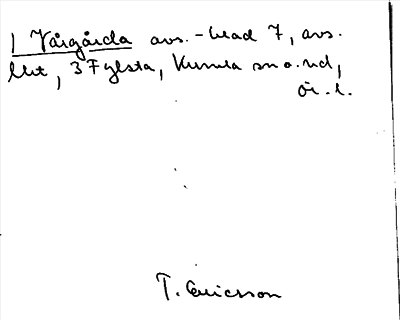 1 Vårgårda avs. - blad 7, avs.
litt, 3 Fylsta, Kumla sn o. hd,
Ör. l.
T. Ericsson